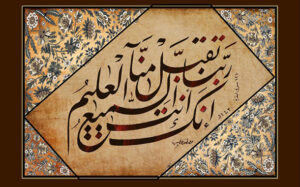 ربنا تقبل منا
انك انت السميع العليم